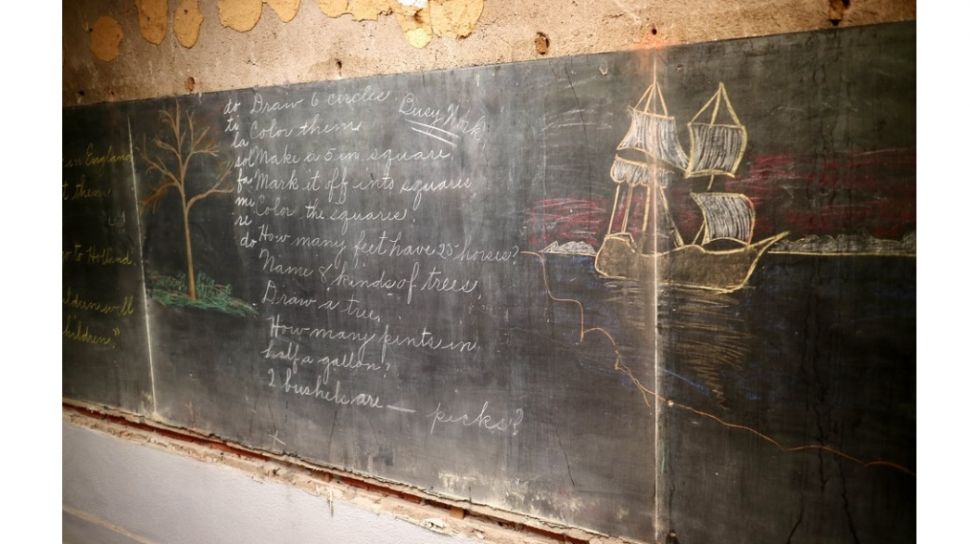 in England
t them
to Holland.
children will
children."
do
ti
la
sol
fa
mi
re
do
Busy Work
Draw 6 circles
Color them.
Make a 5 in. square
Mark it off into squares
Color the squares.
How many feet have 25 horses?
Name 8 kinds of trees.
Draw a tree.
How many pints in
half a gallon?
2 bushels are — pecks?